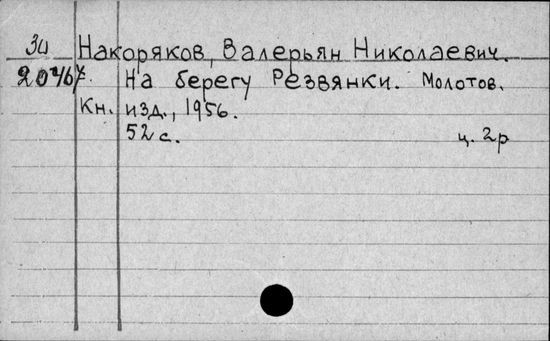 3ч Накоряков, Валерьян Николаевич.
20467. На берегу Резвянки. Молотов.
Кн. изд., 1956.
52 с. ц. 2р